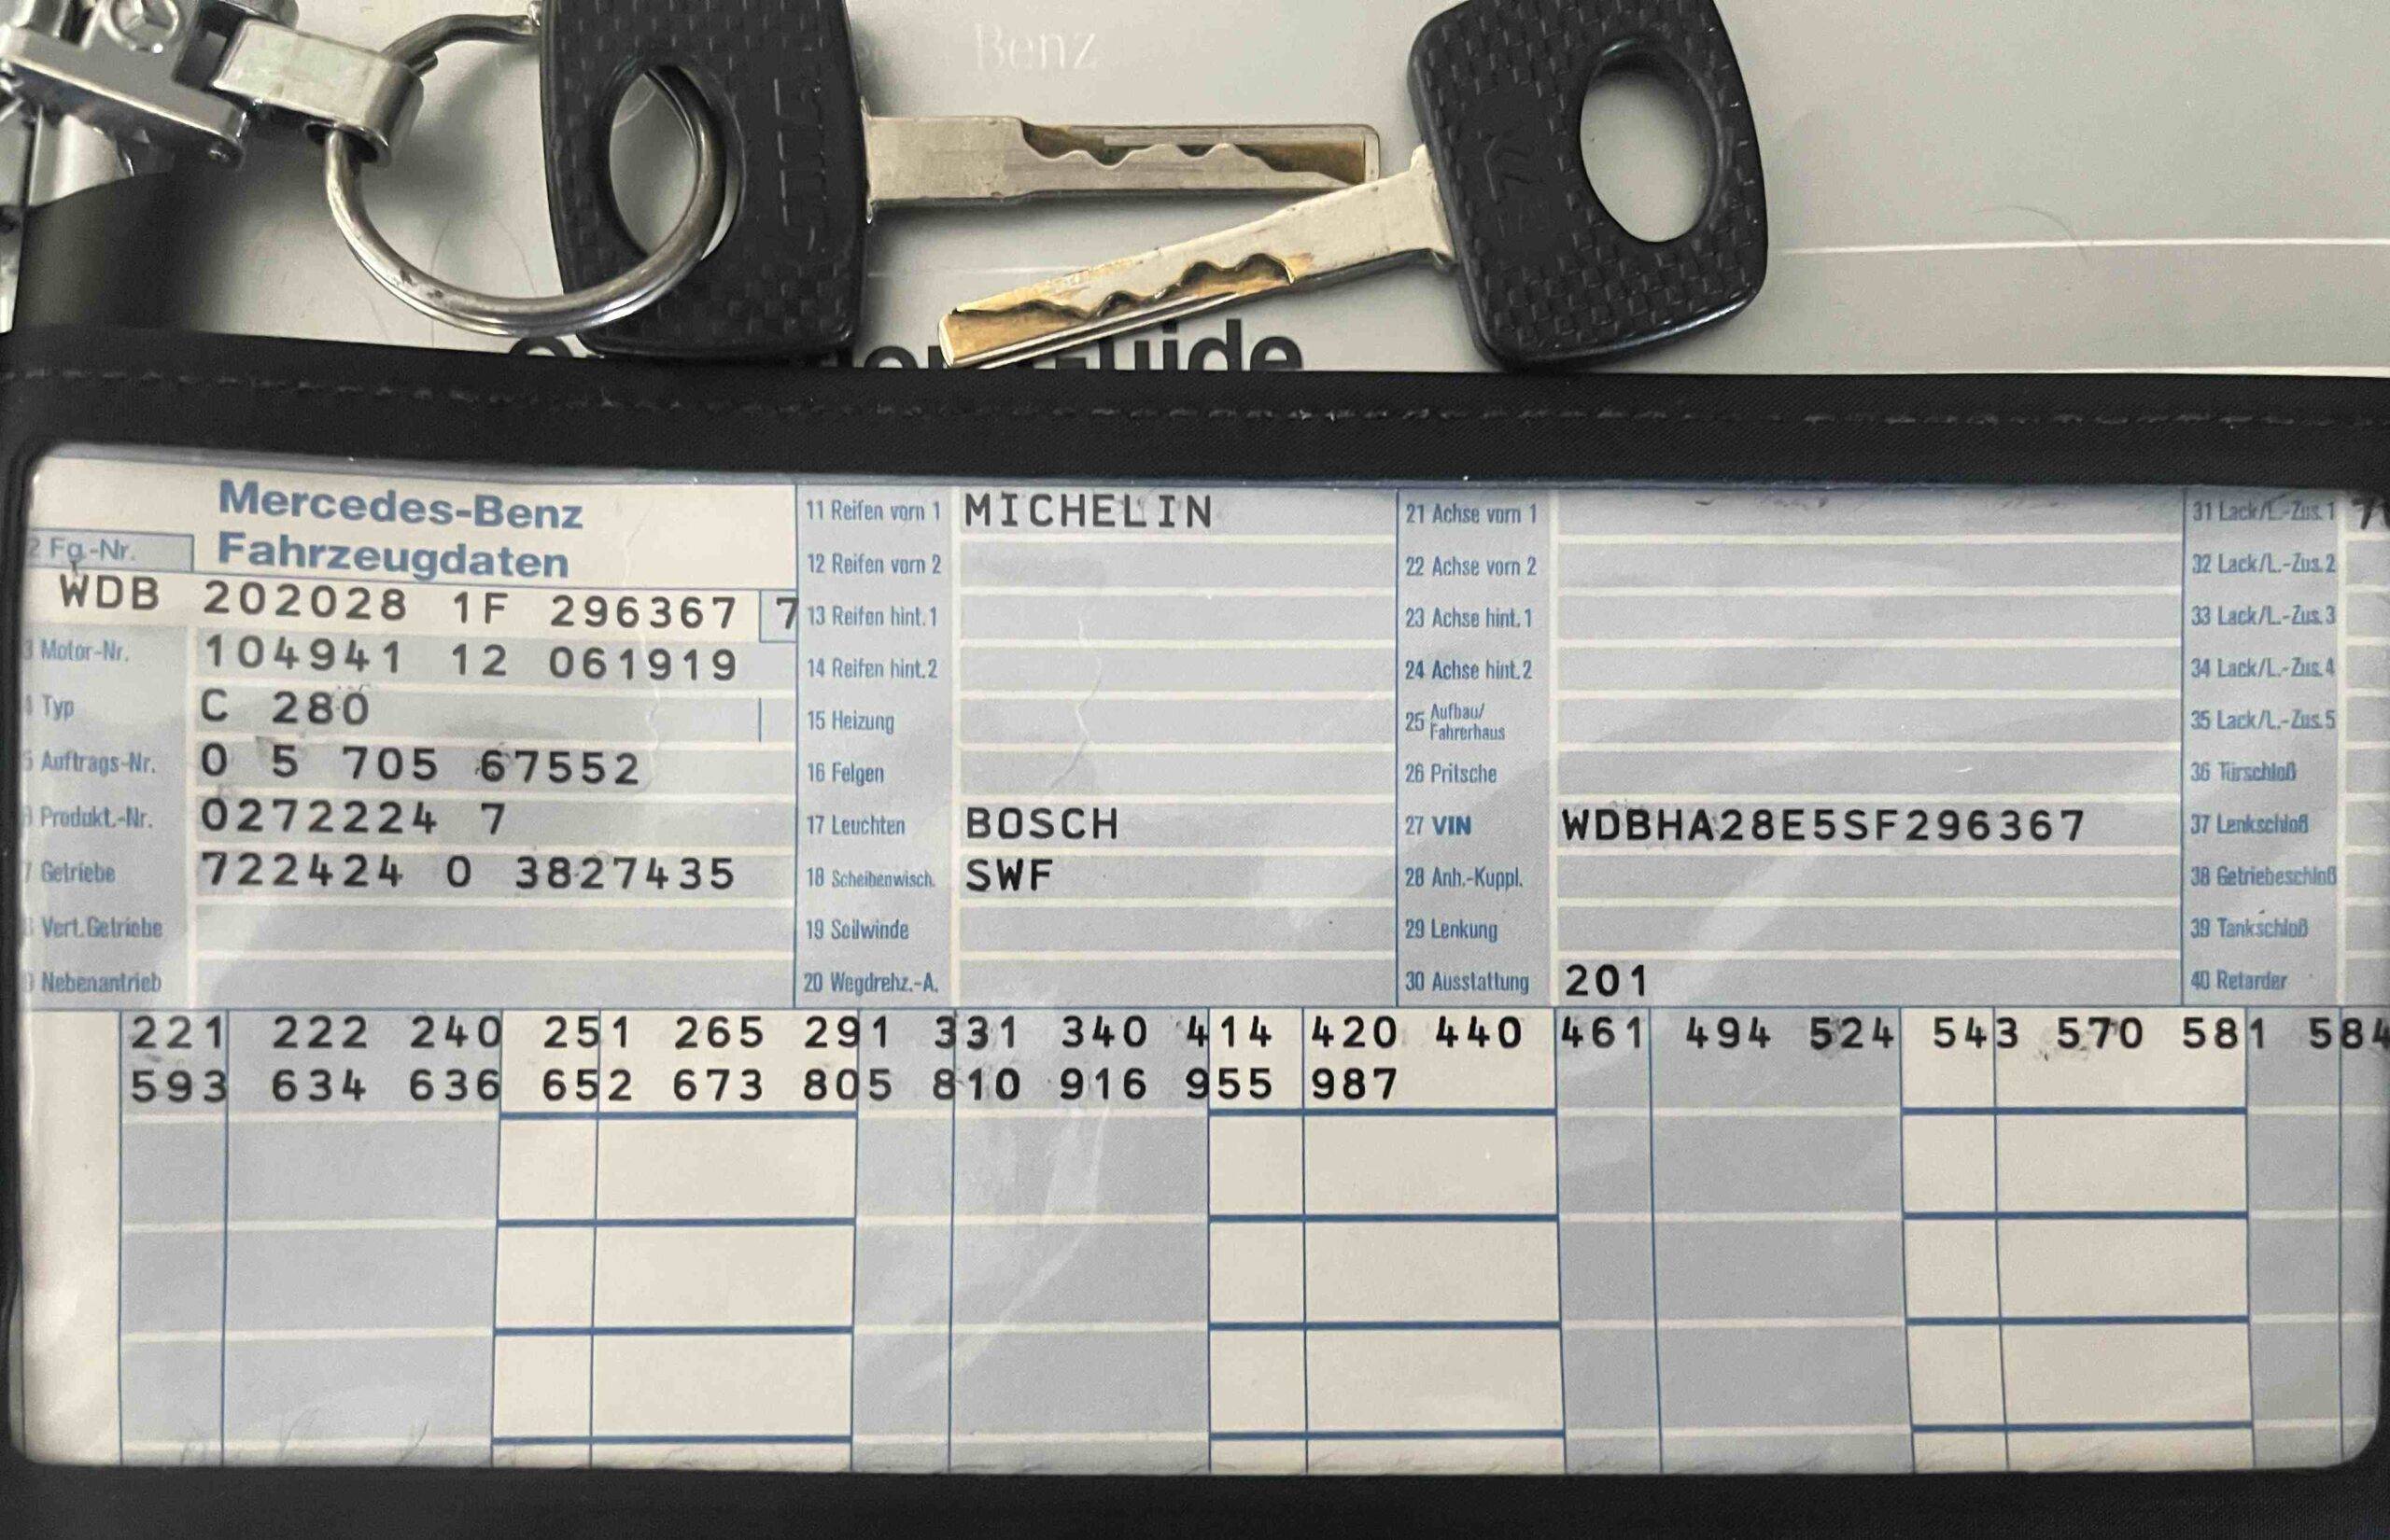 Benz
Guide
Mercedes-Benz
Fahrzeugdaten
2 Fg.-Nr.
WDB 202028 1F 296367 7
3 Motor-Nr. 104941 12 061919
Typ C 280
Auftrags-Nr. 0 5 705 67552
Produkt.-Nr. 0272224 7
7 Getriebe 722424 0 3827435
Vert.Getriebe
Nebenantrieb
11 Reifen vorn 1 MICHELIN
12 Reifen vorn 2
13 Reifen hint.1
14 Reifen hint.2
15 Heizung
16 Felgen
17 Leuchten BOSCH
18 Scheibenwisch. SWF
19 Seilwinde
20 Wegdrehz.-A.
21 Achse vorn 1
22 Achse vorn 2
23 Achse hint.1
24 Achse hint.2
25 Aufbau/
Fahrerhaus
26 Pritsche
27 VIN WDBHA28E5SF296367
28 Anh.-Kuppl.
29 Lenkung
30 Ausstattung 201
31 Lack/L.-Zus.1 7
32 Lack/L.-Zus.2
33 Lack/L.-Zus.3
34 Lack/L.-Zus.4
35 Lack/L.-Zus.5
36 Türschloß
37 Lenkschloß
38 Getriebeschloß
39 Tankschloß
40 Retarder
221 222 240 251 265 291 331 340 414 420 440 461 494 524 543 570 581 584
593 634 636 652 673 805 810 916 955 987